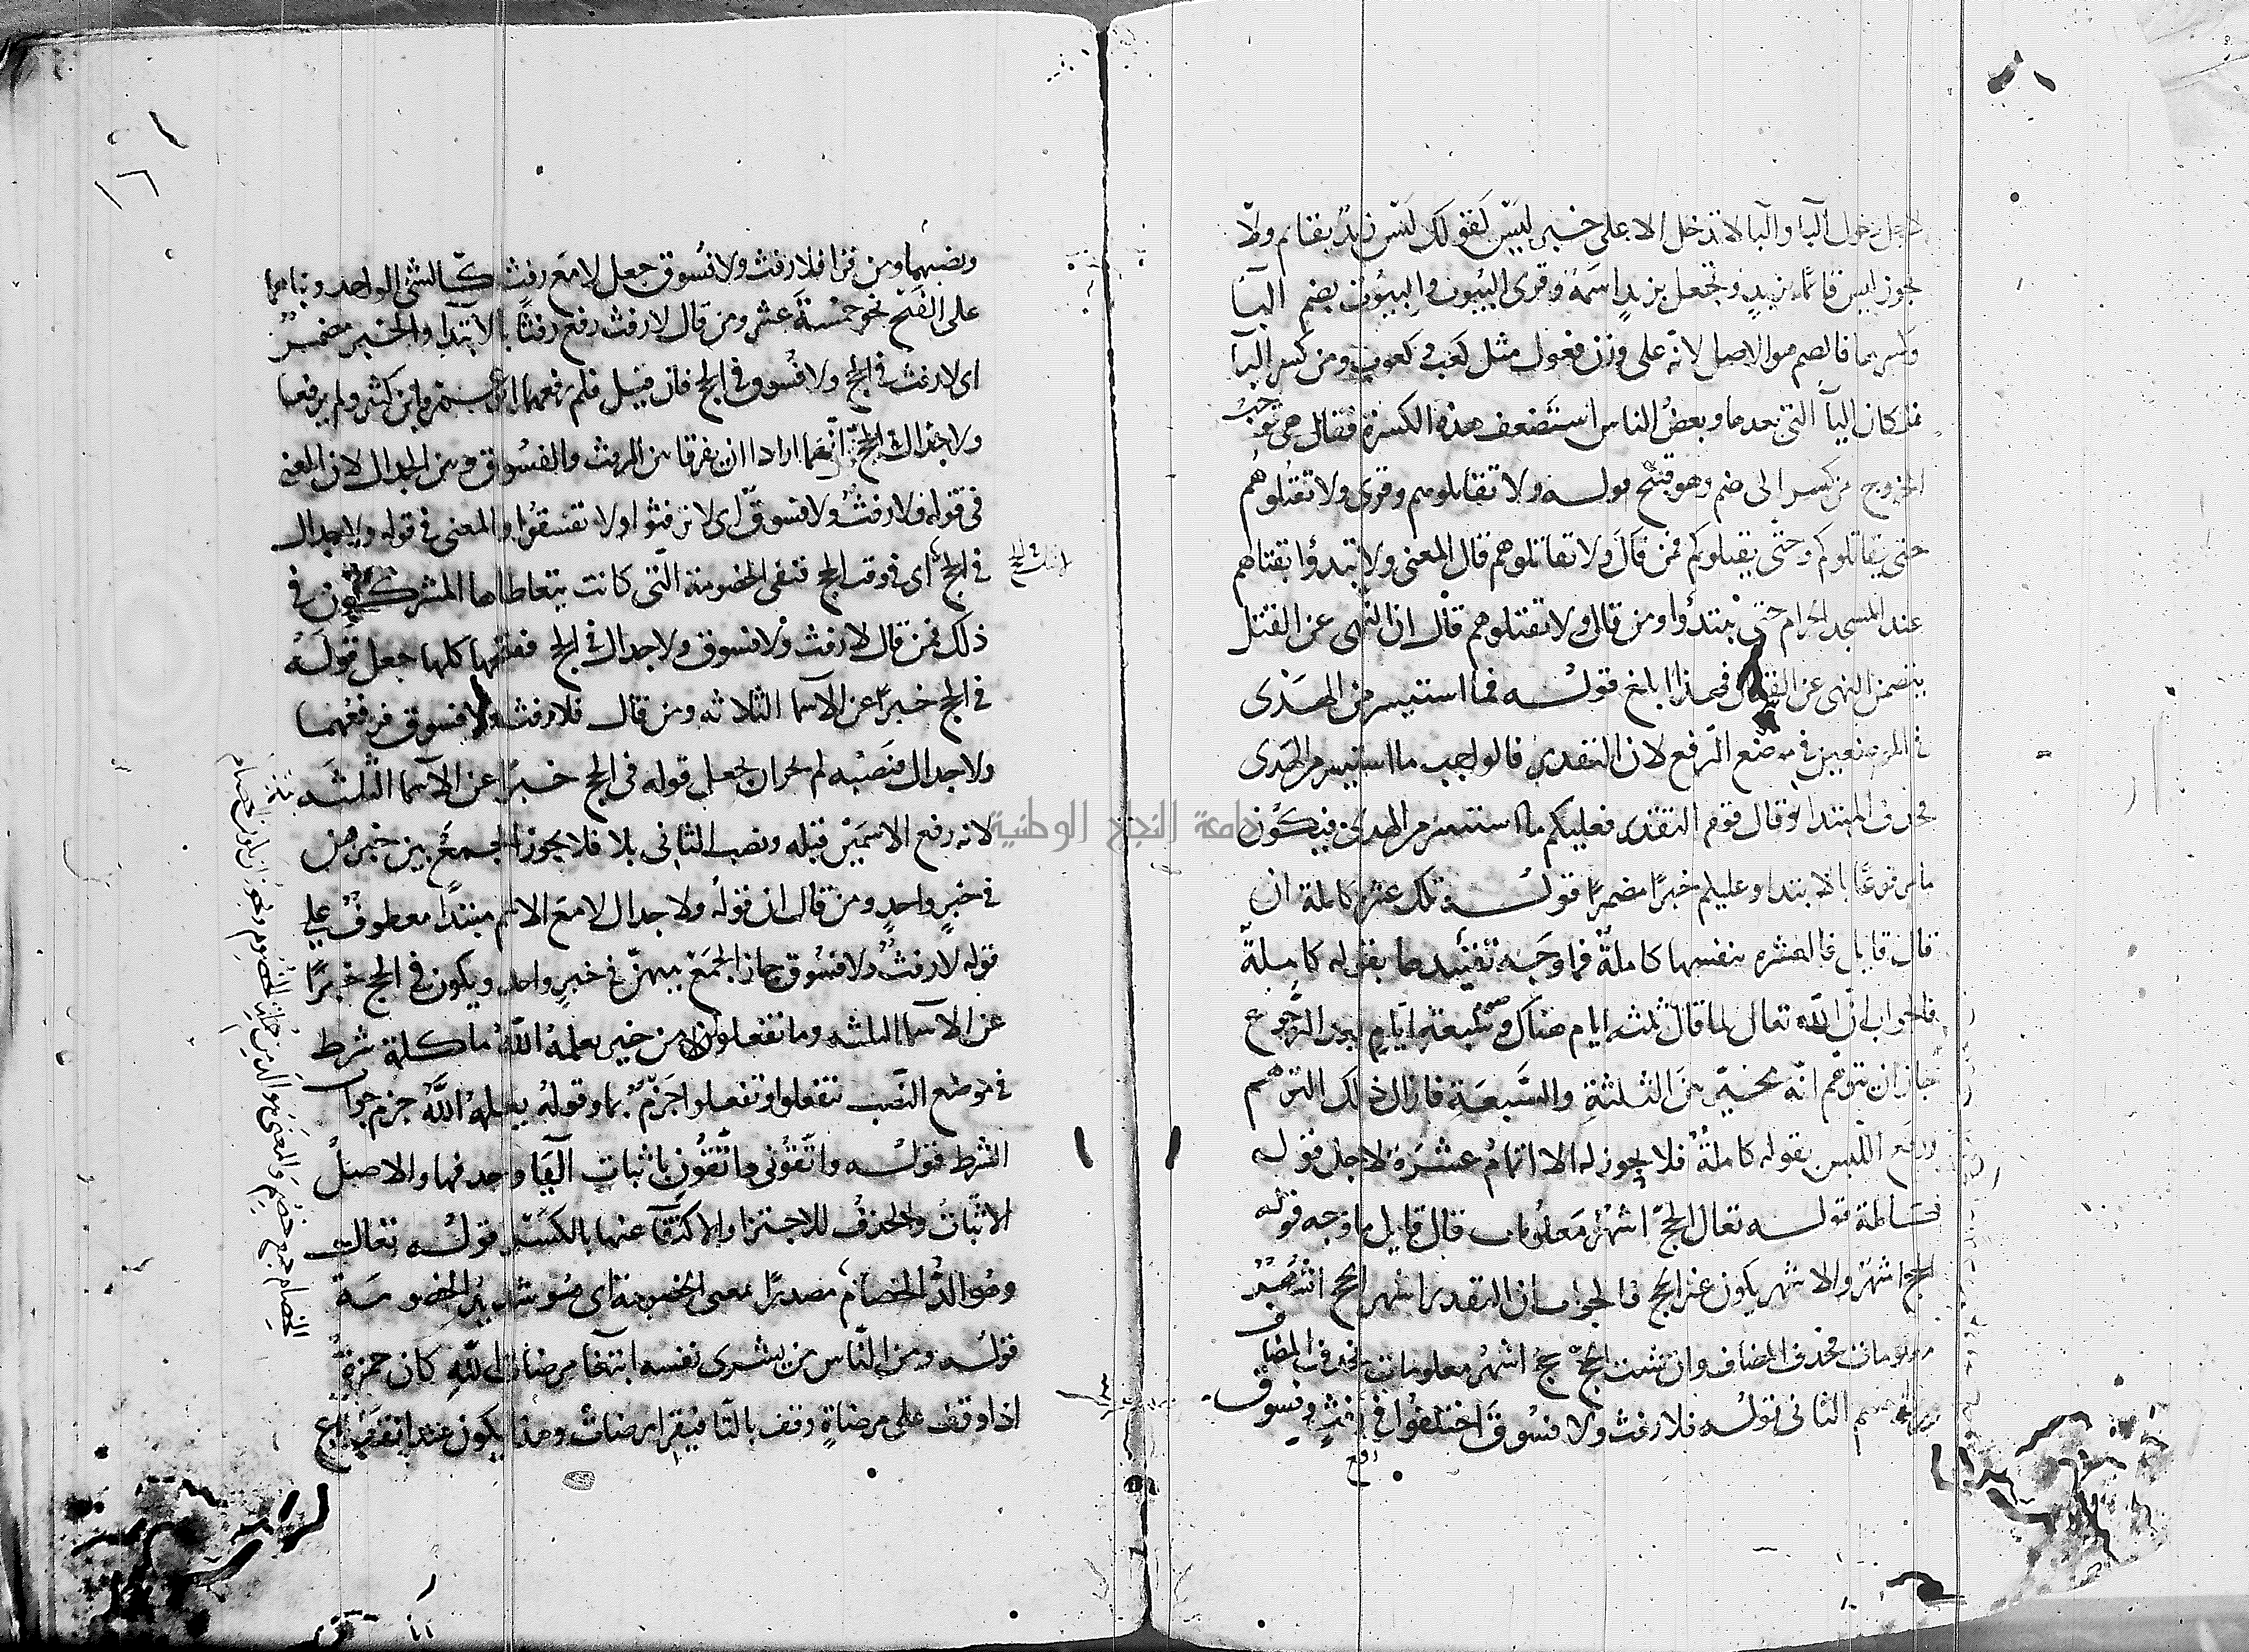 لاجل دخول البا والبا لا تدخل الا على خبر ليس كقولك ليس زيد بقايم ولا
يجوز ليس قائما بزيد وتجعل بزيد اسمه وقرى البيوت والبيوت بضم البا
وكسرها فالضم هو الاصل لانه على وزن فعول مثل كعب وكعوب ومن كسر البا
فلمكان اليآ التى بعدها وبعض الناس استضعف هذه الكسرة فقال هى توجب
الخروج من كسر الى ضم وهو قبيح قوله ولا تقاتلوهم وقرى ولا تقتلوهم
حتى يقاتلوكم وحتى يقتلوكم فمن قال ولا تقاتلوهم قال المعنى ولا تبتدؤا بقتالهم
عند المسجد الحرام حتى يبتدؤا ومن قال ولا تقتلوهم قال ان النهى عن القتل
يتضمن النهى عن القتال فهذا ابلغ قوله فما استيسر من الهدى
فى الموضعين فى موضع الرفع لان التقدير فالواجب ما استيسر من الهدى
فحذف المبتدا وقال قوم التقدير فعليكم ما استيسر من الهدى فيكون
ما مرفوعا بالابتدا وعليكم خبرا مضمرا قوله تلك عشرة كاملة ان
قال قايل فالعشره بنفسها كاملة فما وجه تقييدها بقوله كاملة
فالجواب ان الله تعالى لما قال ثلثه ايام هناك وسبعة ايام بعد الرجوع
جاز ان يتوهم انه مخير بين الثلثة والسبعة فازال ذلك التوهم
ورفع اللبس بقوله كاملة فلا يجوز له الا اتمام عشرة لاجل قوله
كاملة قوله تعالى الحج اشهر معلومات قال قايل ما وجه قوله
الحج اشهر والاشهر يكون غير الحج فالجواب ان التقدير اشهر الحج اشهر
معلومات فحذف المضاف وان شئت الحج حج اشهر معلومات فحذف المضاف
من الاسم الثانى قوله فلا رفث ولا فسوق اختلفوا فى رفث وفسوق
رفع
ونصبهما ومن قرا فلا رفث ولا فسوق جعل لا مع رفث كالشى الواحد وبناهما
على الفتح نحو خمسة عشر ومن قال لا رفث رفع رفثا بالابتدا والخبر مضمر
اى لا رفث فى الحج ولا فسوق فى الحج فان قيل فلم رفعهما ابو عمرو وابن كثير ولم يرفعا
ولا جدال فى الحج انهما ارادا ان يفرقا بين الرفث والفسوق وبين الجدال لان المعنى
فى قوله فلا رفث ولا فسوق اى لا ترفثوا ولا تفسقوا والمعنى فى قوله ولا جدال
فى الحج اى فى وقت الحج فنفى الخصومة التى كانت يتعاطاها المشركون فى
ذلك فمن قال لا رفث ولا فسوق ولا جدال فى الحج ففتحها كلها جعل قوله
فى الحج خبرا عن الاسما الثلاثه ومن قال فلا رفث ولا فسوق فرفعهما
ولا جدال فنصبه لم يجز ان يجعل قوله فى الحج خبرا عن الاسما الثلثه
لانه رفع الاسمين قبله ونصب الثانى بلا فلا يجوز الجمع بين خبرهن
فى خبر واحد ومن قال ان قوله ولا جدال لا مع الاسم مبتدا معطوف على
قوله لا رفث ولا فسوق جاز الجمع بينهن فى خبر واحد ويكون فى الحج خبرا
عن الاسما الثلثه وما تفعلوا من خير يعلمه الله ما كلمة شرط
فى موضع النصب بتفعلوا وتفعلوا جزم بما وقوله يعلمه الله جزم جواب
الشرط قوله واتقونى واتقون باثبات اليا وحذفها والاصل
الاثبات والحذف للاجتزا والاكتفآ عنها بالكسر قوله تعالى
وهو الد الخصام مصدرا بمعنى الخصومة اى هو شديد الخصومة
قوله ومن الناس من يشرى نفسه ابتغا مرضات الله كان حمزة
اذا وقف على مرضاة وقف بالتا فيقرا مرضات وهذا يكون عند
جامعة النجاح الوطنية
١٦